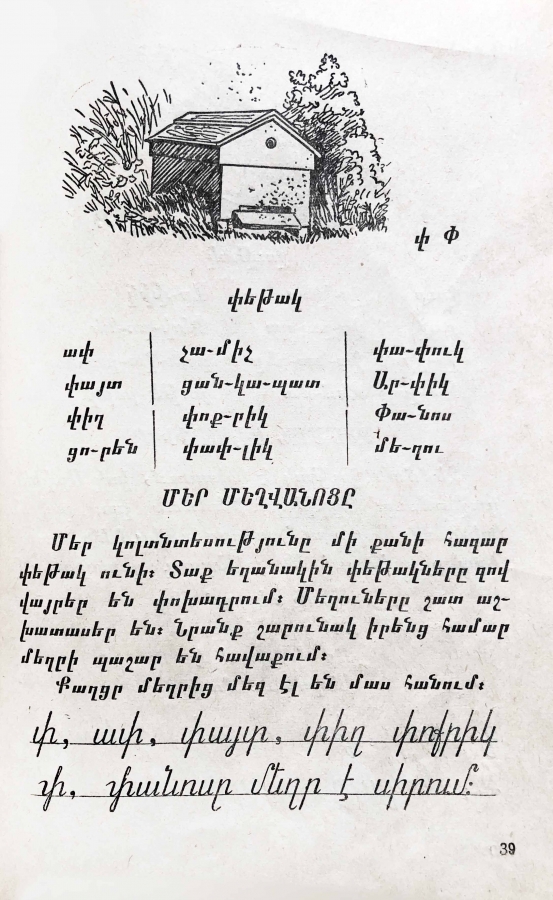 փ Փ
փեթակ
ափ չա-միչ փա-փուկ
փայտ ցան-կա-պատ Ար-փիկ
փիղ փոք-րիկ Փա-նոս
ցո-րեն փափ-լիկ մե-ղու
ՄԵՐ ՄԵՂՎԱՆՈՑԸ
Մեր կոլտնտեսությունը մի քանի հազար
փեթակ ունի։ Տաք եղանակին փեթակները զով
վայրեր են փոխադրում։ Մեղուները շատ աշ-
խատասեր են։ Նրանք շարունակ իրենց համար
մեղրի պաշար են հավաքում։
Քաղցր մեղրից մեզ էլ են մաս հանում։
փ, ափ, փայտ, փիղ փոքրիկ
Փ, Փանոսը մեղր է սիրում։
39